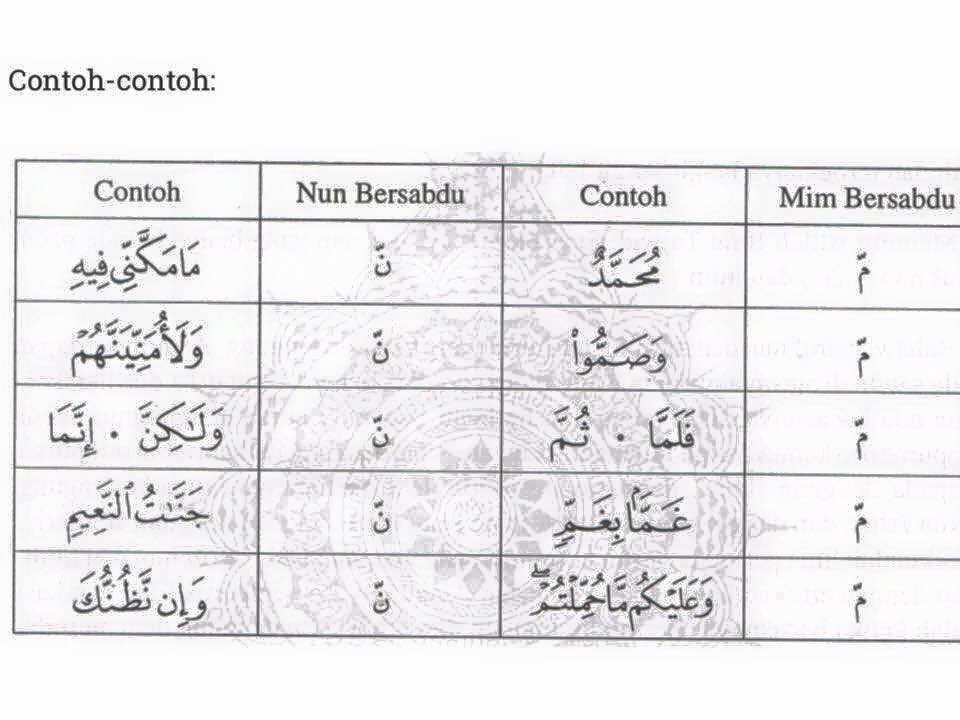 Contoh-contoh:
Contoh Nun Bersabdu Contoh Mim Bersabdu
مَا مَكَّنِّى فِيهِ نّ مُحَمَّدٌ مّ
وَلَأُمَنِّيَنَّهُمْ نّ وَصَمُّوا۟ مّ
وَلَـٰكِنَّ • إِنَّمَا نّ فَلَمَّا • ثُمَّ مّ
جَنَّـٰتُ ٱلنَّعِيمِ نّ غَمًّۢا بِغَمٍّ مّ
وَإِن نَّظُنُّكَ نّ وَعَلَيْكُم مَّا حُمِّلْتُمْ ۖ مّ